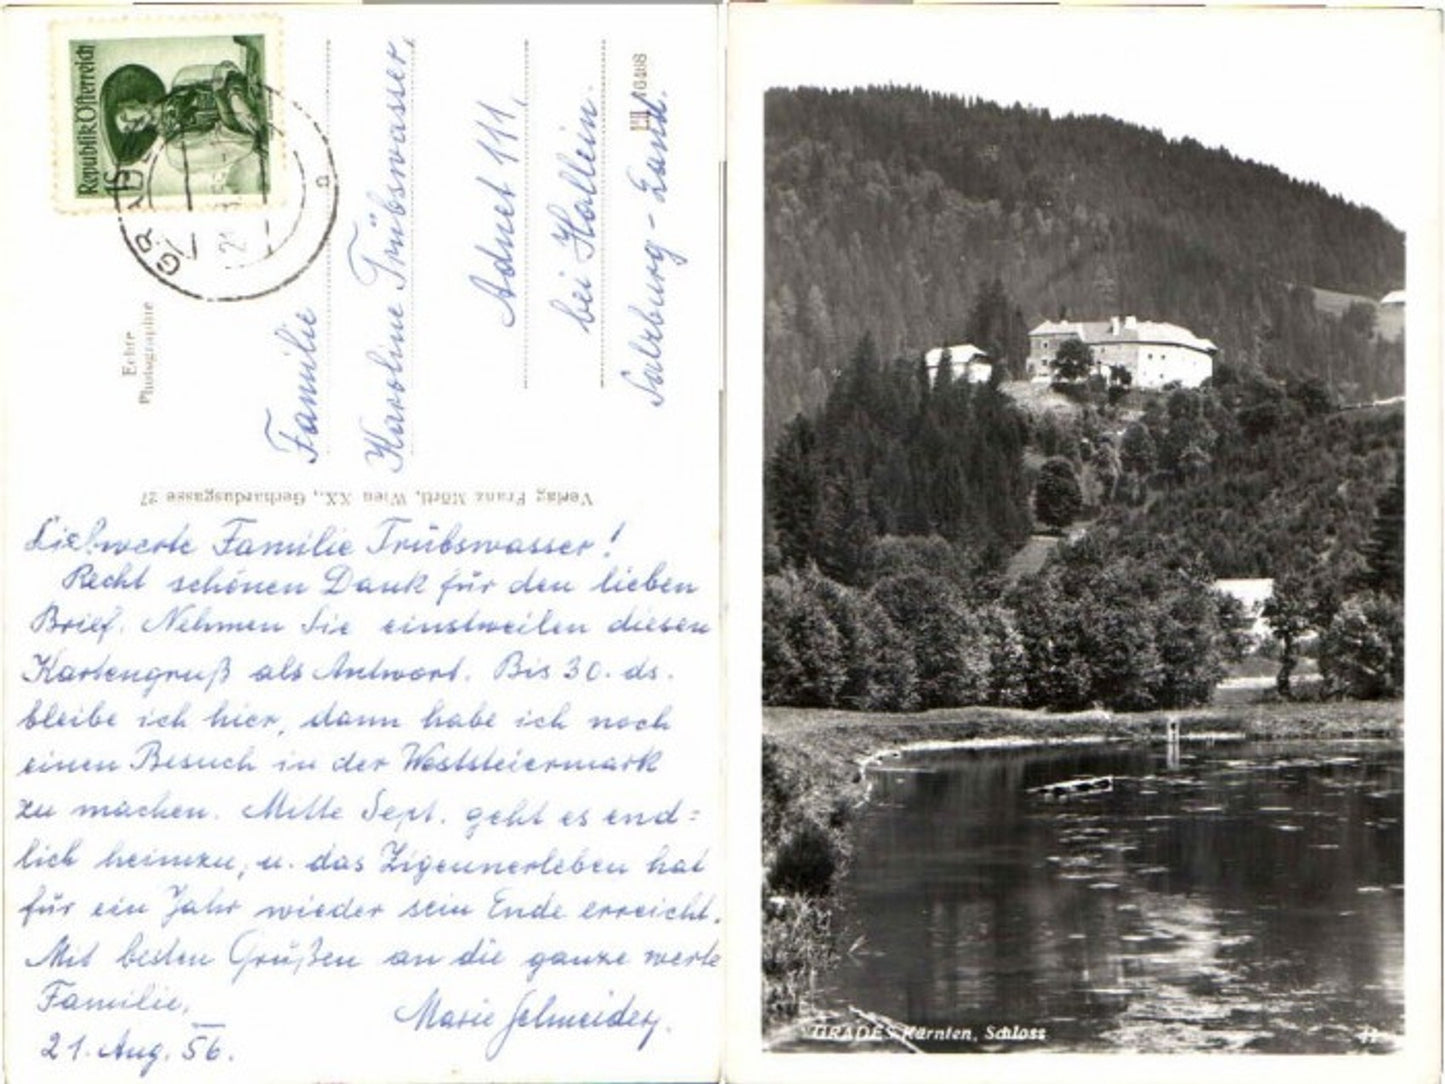 Republik Österreich
GRADES
Echte
Photographie
16468
Familie
Karoline Trübswasser,
Adnet 111,
bei Hallein.
Salzburg-Land.
Verlag Franz Mörtl, Wien XX., Gerhardusgasse 27
Liebwerte Familie Trübswasser!
Recht schönen Dank für den lieben
Brief. Nehmen Sie einstweilen diesen
Kartengruß als Antwort. Bis 30. ds.
bleibe ich hier, dann habe ich noch
einen Besuch in der Weststeiermark
zu machen. Mitte Sept. geht es end=
lich heimzu, u. das Zigeunerleben hat
für ein Jahr wieder sein Ende erreicht.
Mit besten Grüßen an die ganze werte
Familie,
Marie Schneider.
21. Aug. 56.
GRADES Kärnten, Schloss